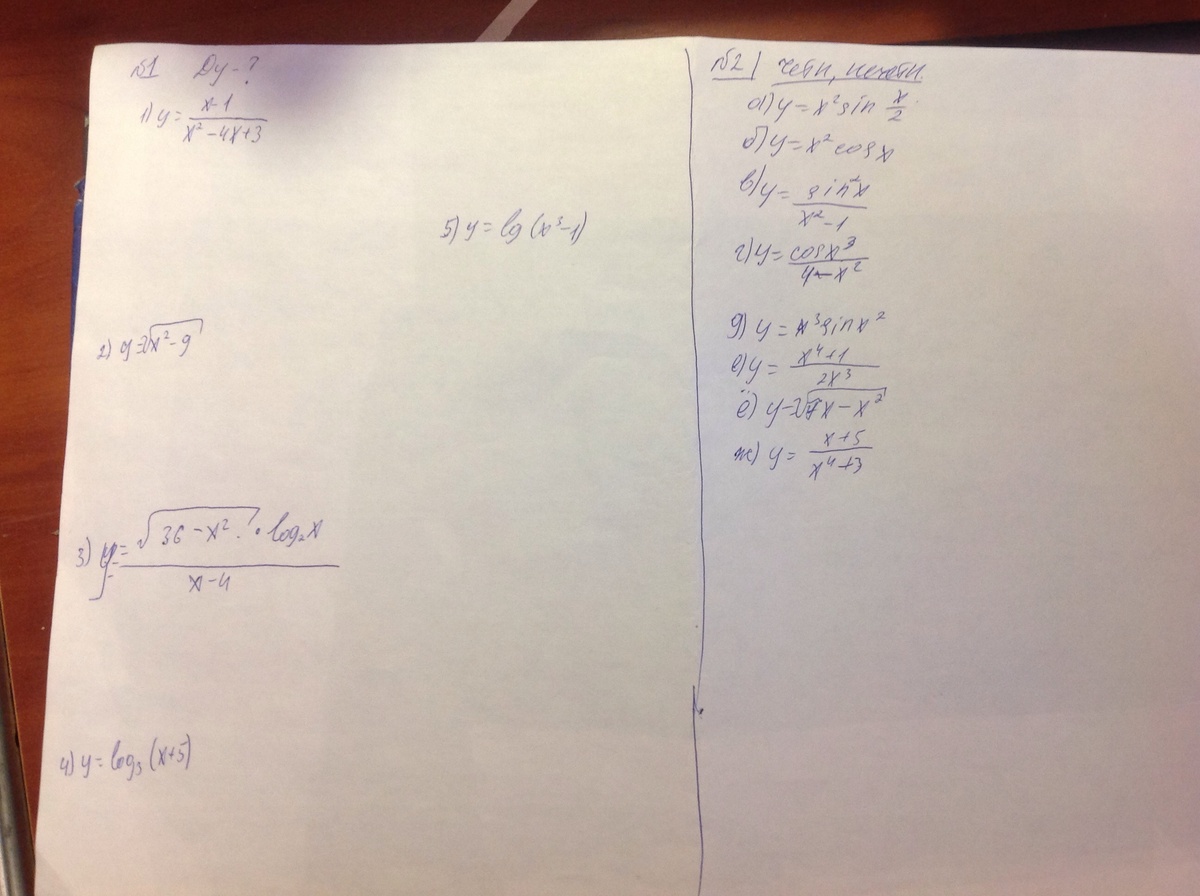 №1 Dy-?
1) y = x-1 / x² - 4x + 3
5) y = lg (x³ - 1)
2) y = √x² - 9
3) y = √36 - x² · log₂x / x - 4
4) y = log₃ (x+5)
№2 четн, нечетн.
а) y = x² sin x/2
б) y = x² cos x
в) y = sin²x / x² - 1
г) y = cos x³ / 4 - x²
д) y = x³ sin x²
е) y = x⁴ + 1 / 2x³
ж) y = x + 5 / x⁴ + 3